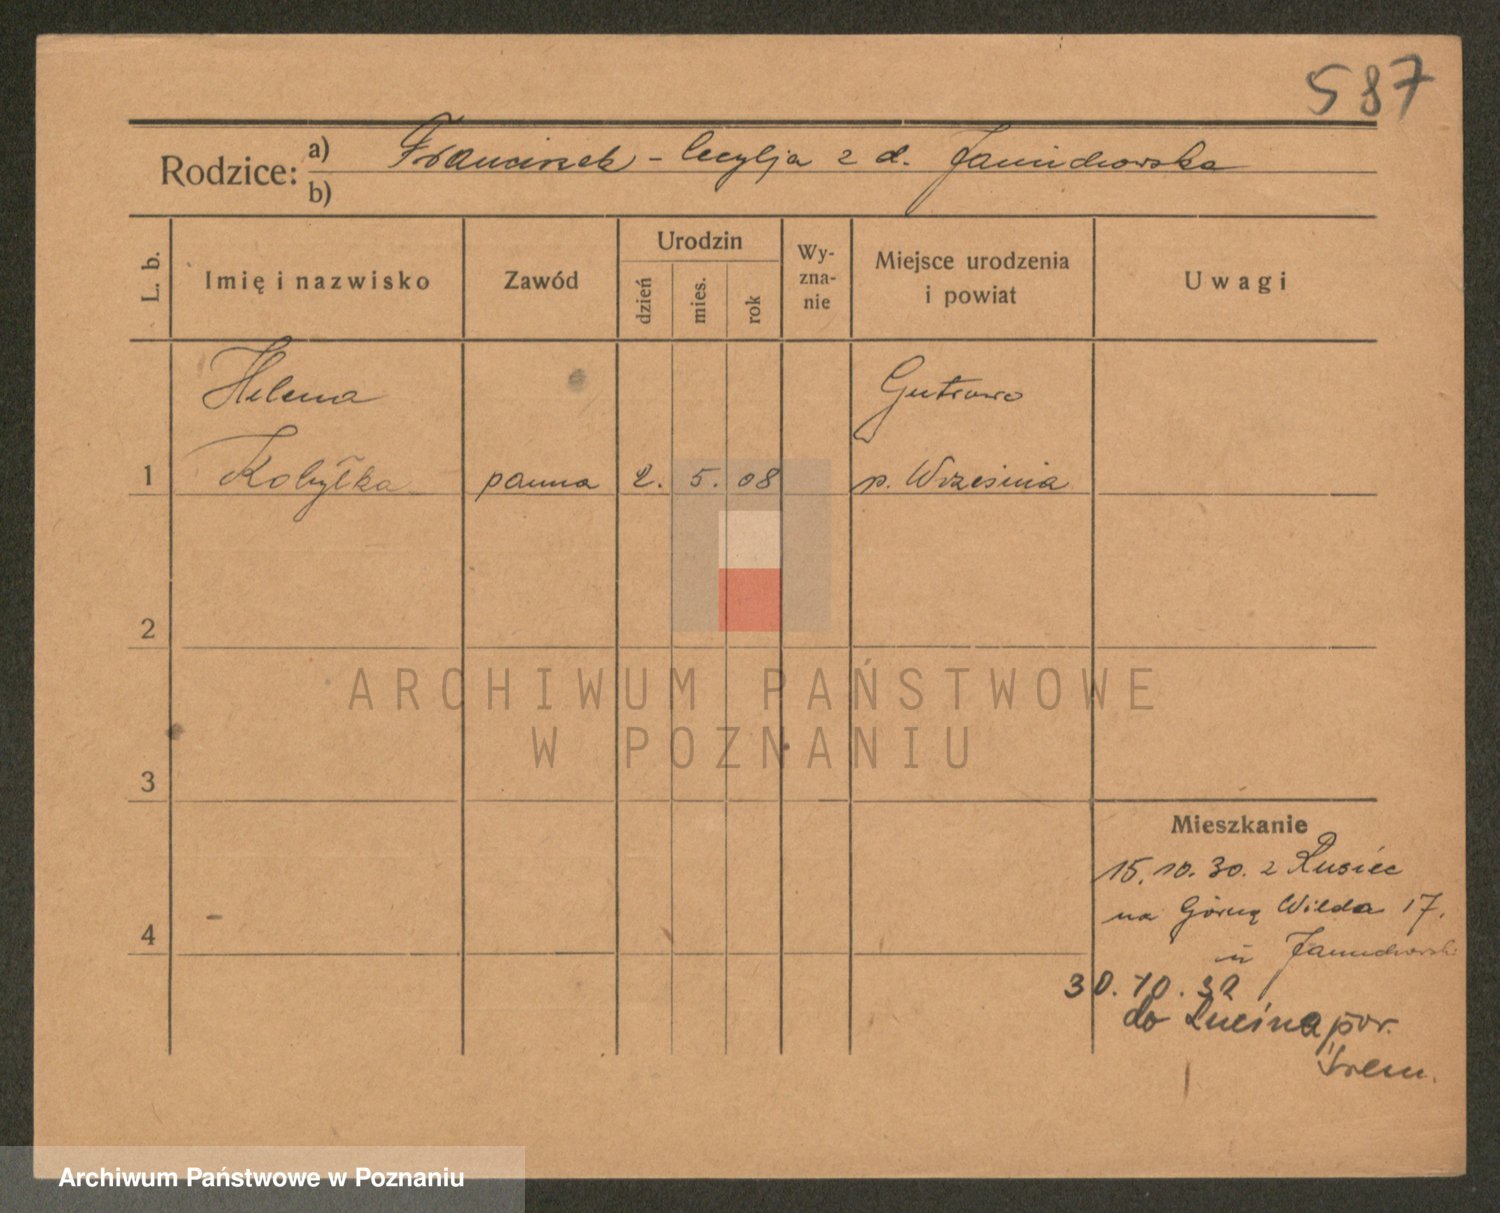 587
Rodzice: a) Franciszek - Cecylja z d. Janichowska
b)
L. b.
Imię i nazwisko
Zawód
Urodzin
dzień
mies.
rok
Wy-
zna-
nie
Miejsce urodzenia
i powiat
Uwagi
Helena
Gutowo
1 Kobyłka panna 2. 5. 08 p. Września
2
3
4
Mieszkanie
15.10.30. z Rusiec
na Górną Wilda 17.
u
30.10.32
do Lucina pow.
Śrem.
ARCHIWUM PAŃSTWOWE
W POZNANIU
Archiwum Państwowe w Poznaniu